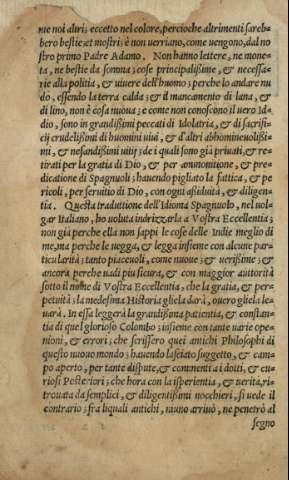 me noi altri; eccetto nel colore, percioche altrimenti sareb-
bero bestie, et mostri; & non uerriano, come uengono, dal no
stro primo Padre Adamo. Non hanno lettere, ne mone-
ta, ne bestie da soma; cose principalißime, & necessa-
rie alla politia, & uiuere dell'huomo; perche lo andare nu
do, essendo la terra calda; & il mancamento di lana, &
di lino, non è cosa nuoua; e come non conoscono il uero Id-
dio, sono in grandißimi peccati di Idolatria, & di sacrifi-
cij crudelißimi di huomini uiui, & d'altri abhomineuolißi-
mi, & nefandißimi uitij; de i quali sono già priuati, & re-
tirati per la gratia di Dio, & per ammonitione, & pre-
dicatione di Spagnuoli; hauendo pigliato la fattica, & pe
ricoli, per seruitio di Dio, con ogni aßiduità, & diligen-
tia. Questa traduttione dell'Idioma Spagnuolo, nel uol-
gar Italiano, ho uoluta indrizzarla a Vostra Eccellentia;
non già perche ella non sappi le cose delle Indie meglio di
me, ma perche le uegga, & legga insieme con alcune par-
ticularità; tanto piaceuoli, come nuoue; & uerißime; &
ancora perche uadi piu sicura, & con maggior autorità
sotto il nome di Vostra Eccellentia; che la gratia, & per-
petuità; la medesima Historia gliela darà, ouero gliela le-
uarà. In essa leggerà la grandißima patientia, & constan-
tia di quel glorioso Colombo; insieme con tante uarie ope-
nioni, & errori; che scrissero quei antichi Philosophi di
questo nuouo mondo; hauendo lasciato suggetto, & cam-
po aperto, per tante dispute, & commenti a i dotti, & cu-
riosi Posteriori; che hora con la isperientia, & uerità, ri-
trouata da semplici, & diligentißimi nocchieri, si uede il
contrario; fra liquali antichi, niuno arriuò, ne penetrò al
segno